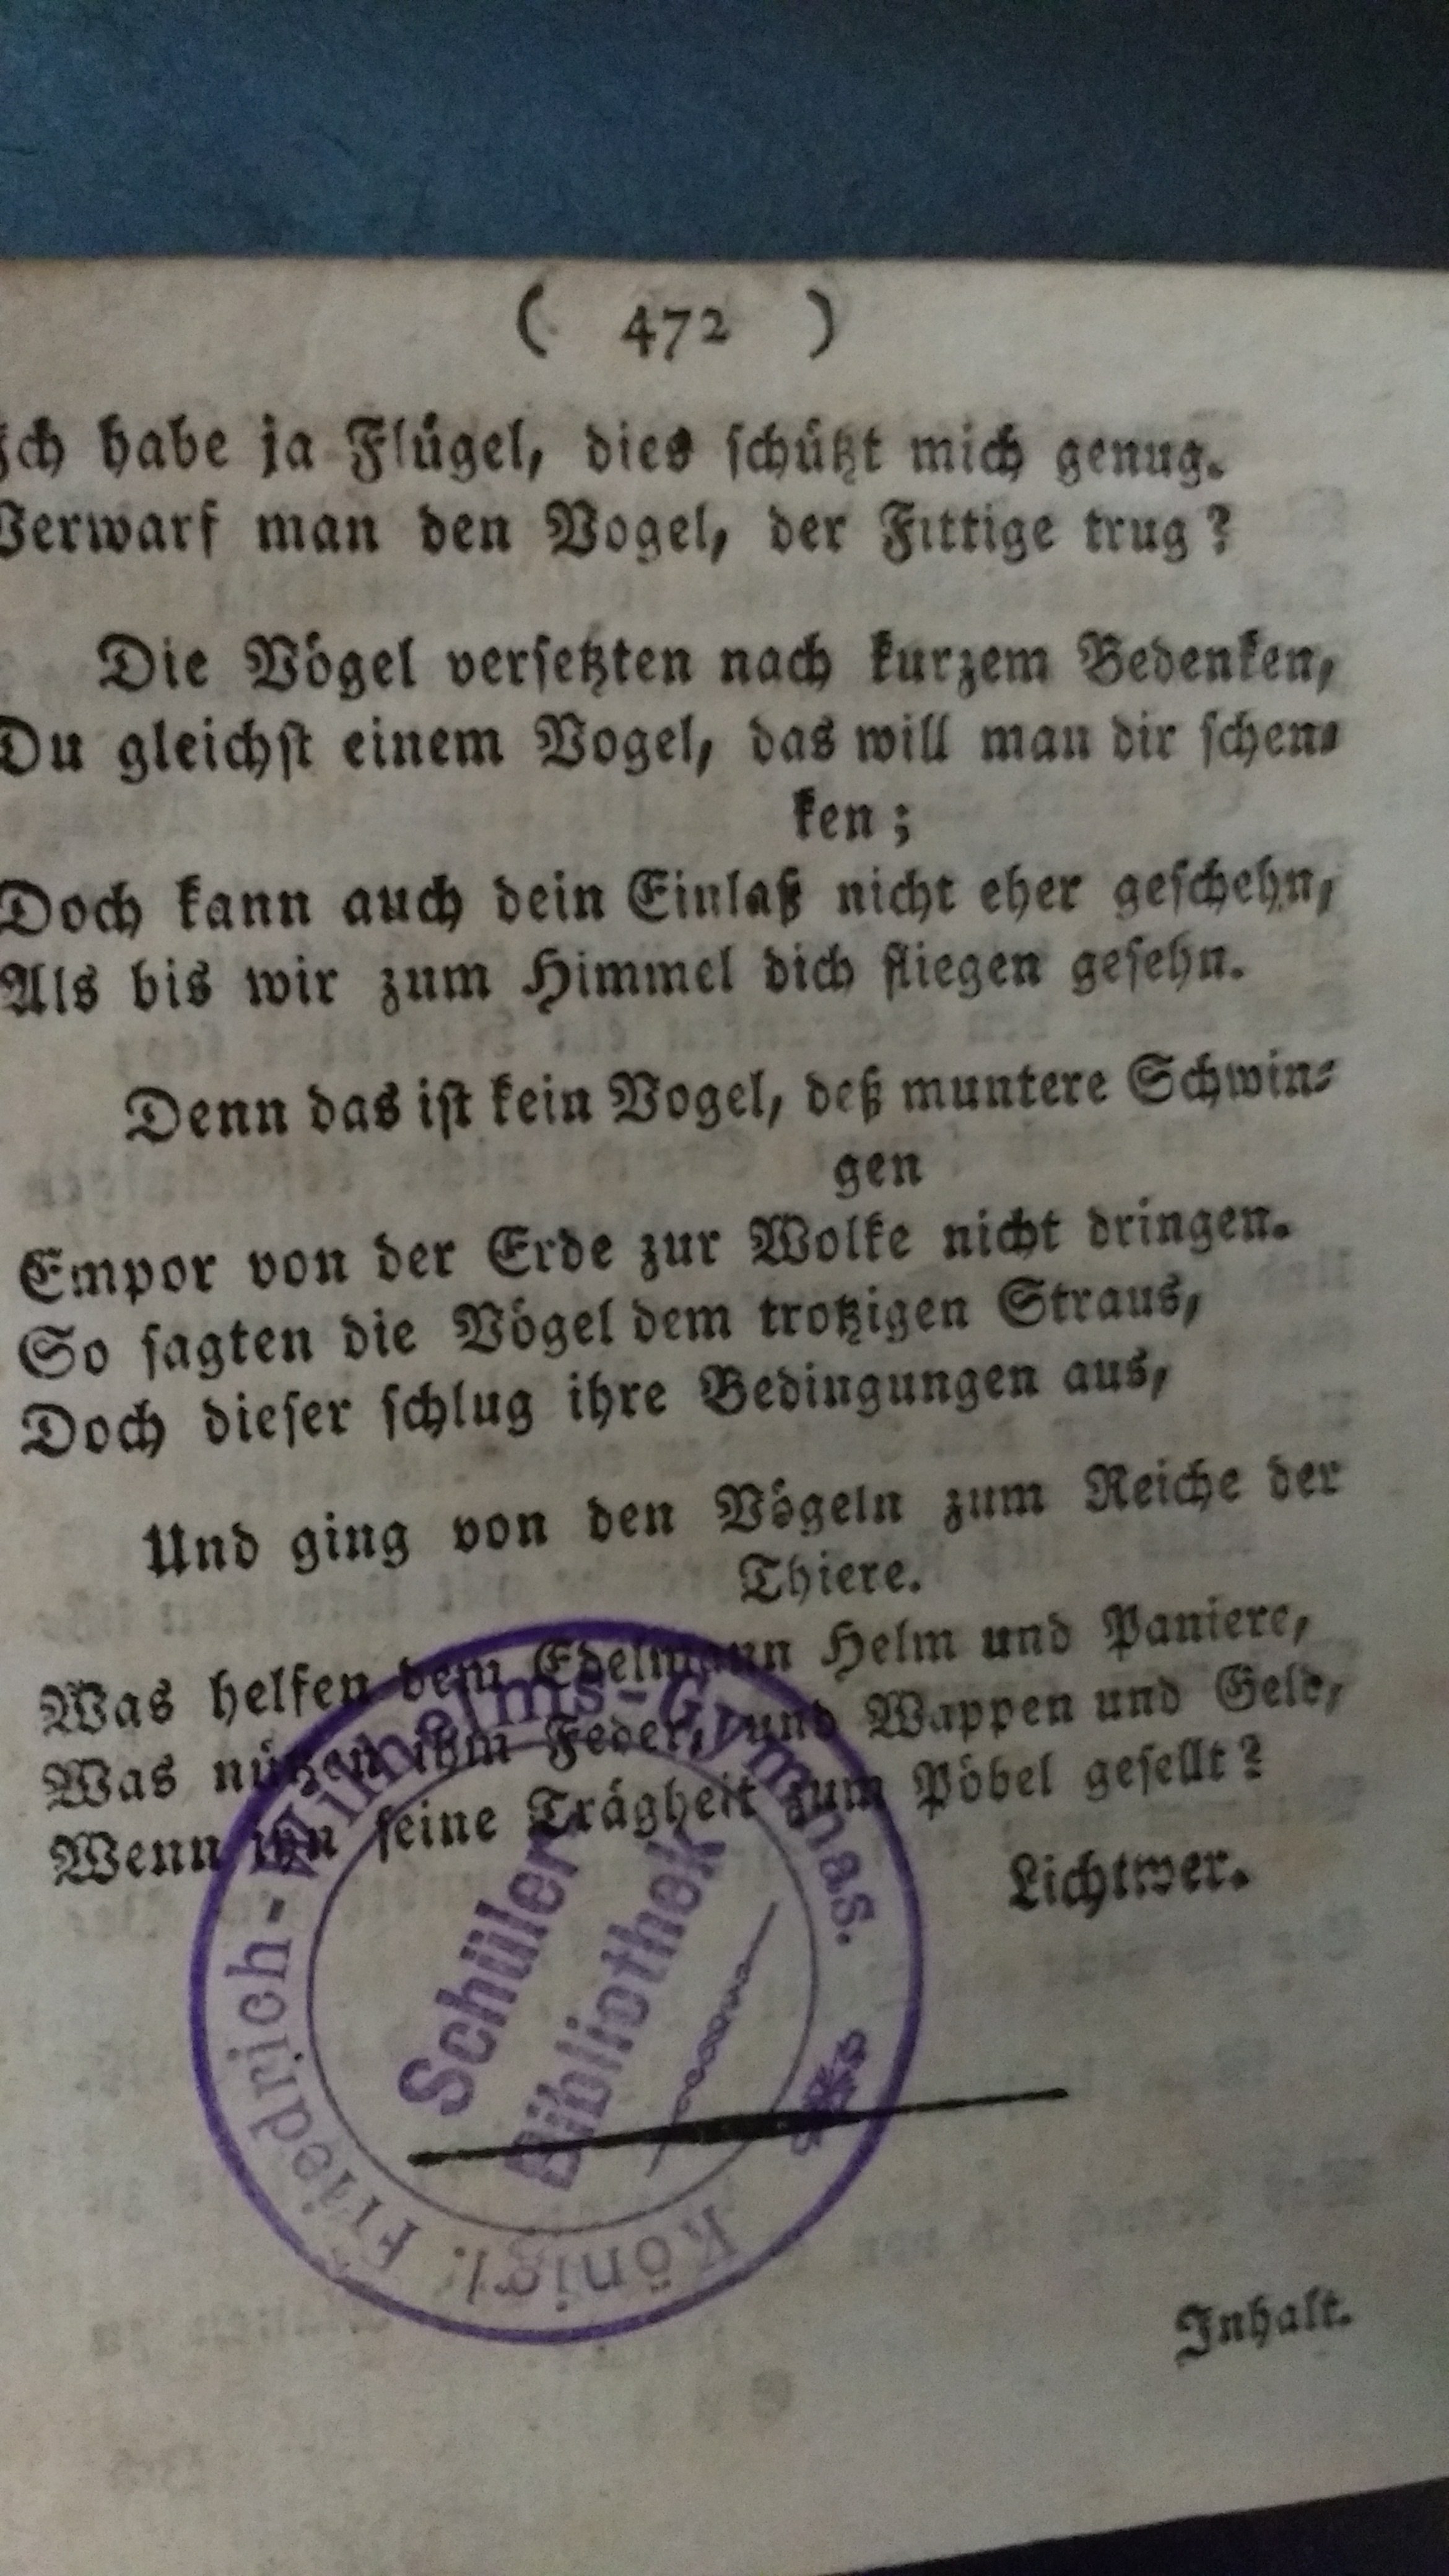 ( 472 )
Ich habe ja Flügel, dies schützt mich genug.
Verwarf man den Vogel, der Fittige trug?
Die Vögel versetzten nach kurzem Bedenken,
Du gleichst einem Vogel, das will man dir schen-
ken;
Doch kann auch dein Einlaß nicht eher geschehn,
Als bis wir zum Himmel dich fliegen gesehn.
Denn das ist kein Vogel, deß muntere Schwin-
gen
Empor von der Erde zur Wolke nicht dringen.
So sagten die Vögel dem trotzigen Straus,
Doch dieser schlug ihre Bedingungen aus,
Und ging von den Vögeln zum Reiche der
Thiere.
Was helfen dem Edelmann Helm und Paniere,
Was nützen ihm Feder, und Wappen und Geld,
Wenn ihn seine Trägheit zum Pöbel gesellt?
Lichtwer.
Königl. Friedrich-Wilhelms-Gymnas.
Schüler
Bibliothek
Inhalt.